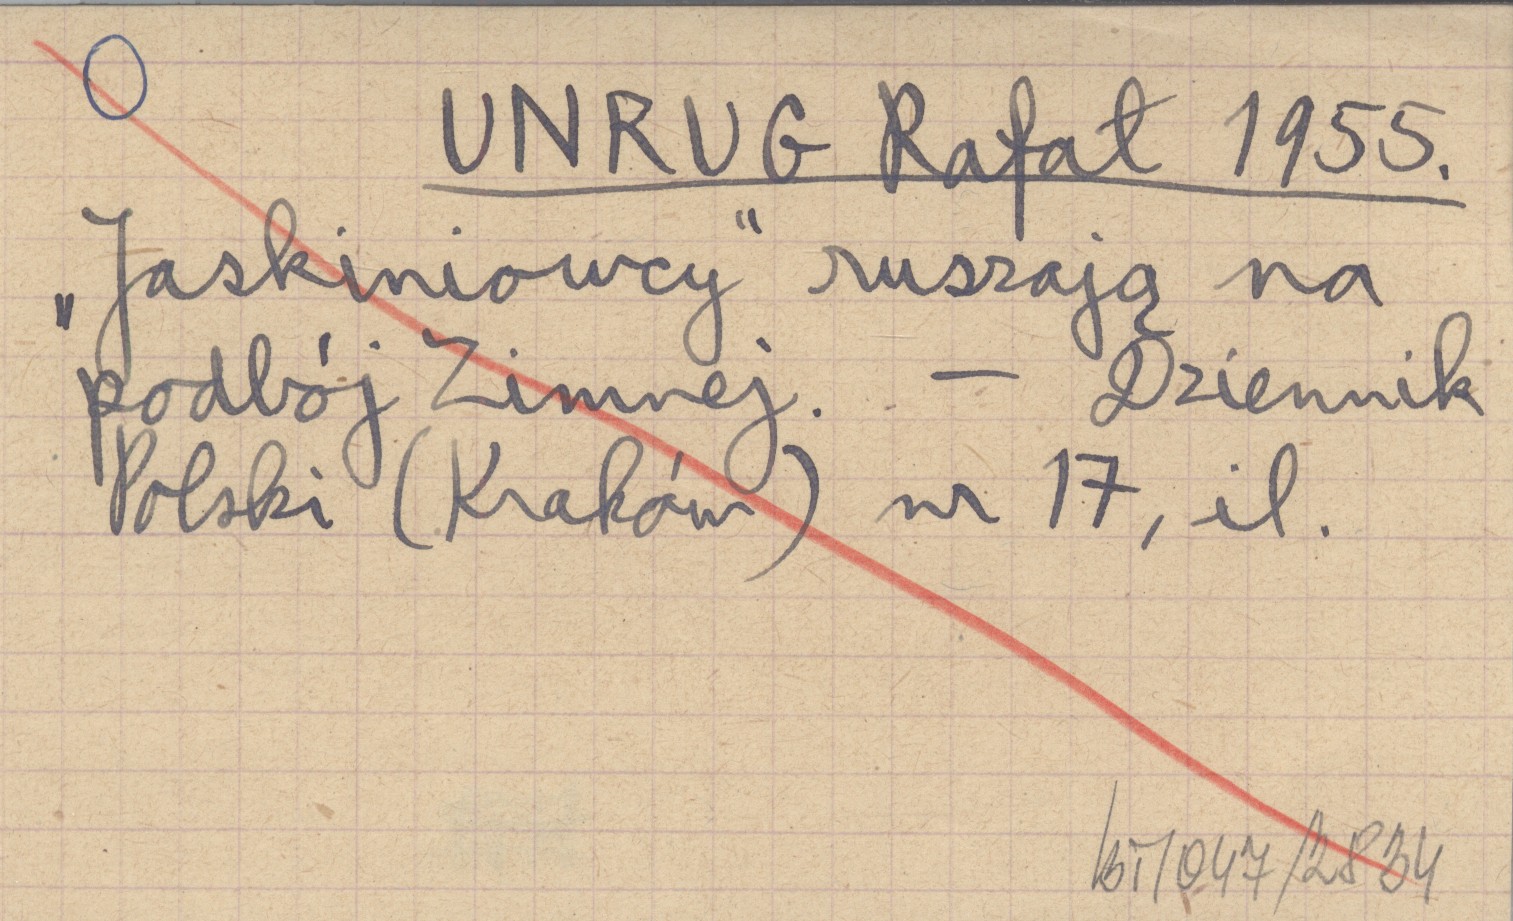 UNRUG Rafał 1955.
„Jaskiniowcy" ruszają na
podbój Zimnej. — Dziennik
Polski (Kraków) nr 17, il.
/047/2834